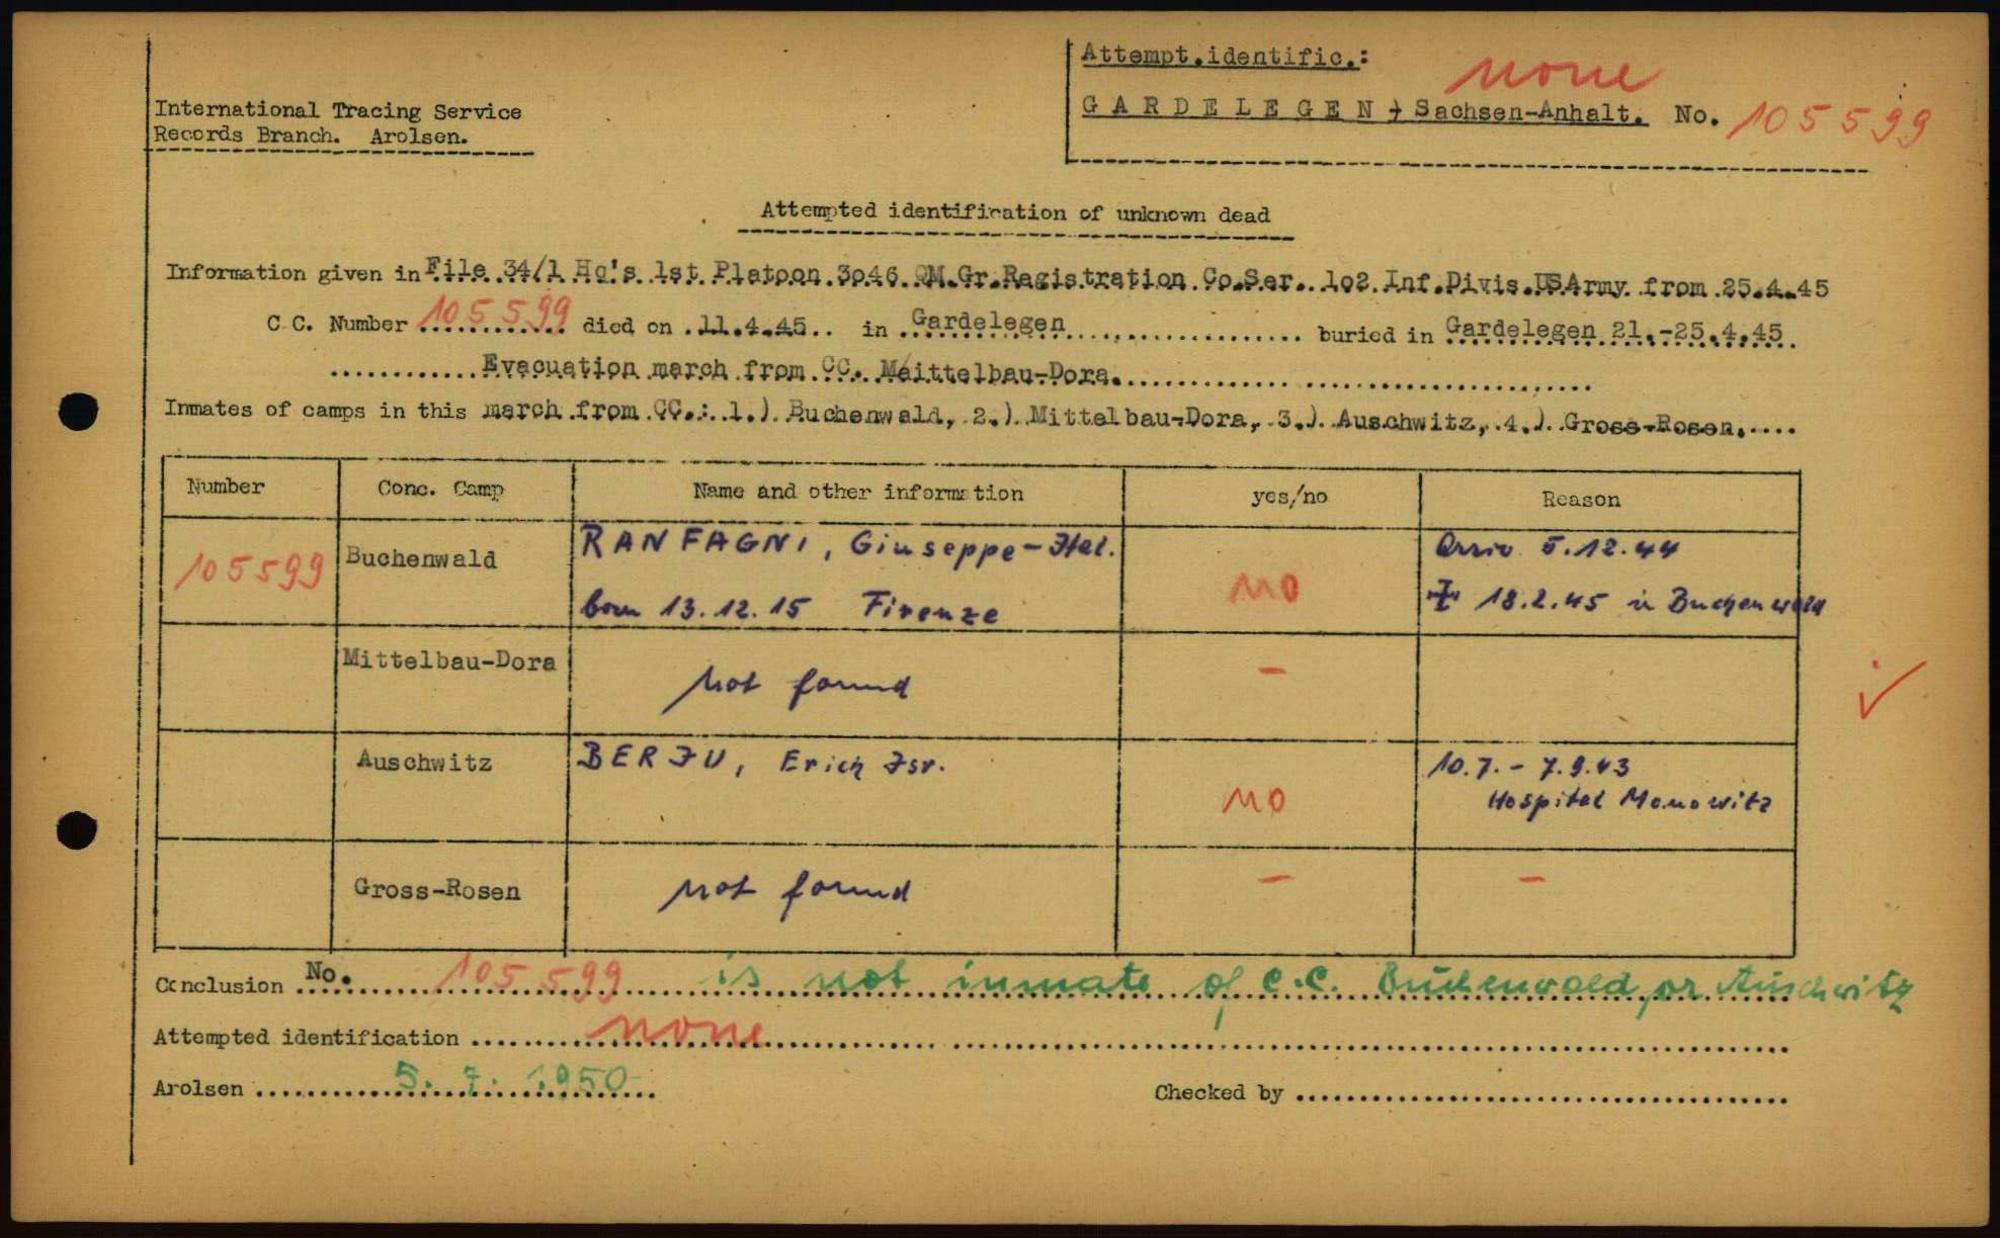 Attempt.identific.: none
International Tracing Service
Records Branch. Arolsen.
G A R D E L E G E N / Sachsen-Anhalt. No. 105599
Attempted identification of unknown dead
Information given in File 34/1 Hq's 1st Platoon 3o46 QM.Gr.Ragistration Co.Ser. 1o2 Inf.Divis.USArmy from 25.4.45
C.C. Number 105599 died on 11.4.45 in Gardelegen buried in Gardelegen 21.-25.4.45
Evacuation march from CC. Mittelbau-Dora.
Inmates of camps in this march from CC.: 1.) Buchenwald, 2.) Mittelbau-Dora, 3.) Auschwitz, 4.) Gross-Rosen.
Number Conc. Camp Name and other information yes/no Reason
105599 Buchenwald RANFAGNI, Giuseppe - Ital. no Arriv. 5.12.44
born 13.12.15 Firenze + 18.2.45 in Buchenwald
Mittelbau-Dora not found -
Auschwitz BERJU, Erich Isr. no 10.7. - 7.9.43
Hospital Monowitz
Gross-Rosen not found - -
Conclusion No. 105599 is not inmate of C.C. Buchenwald, or Auschwitz
Attempted identification none
Arolsen 5. 7. 1950 Checked by